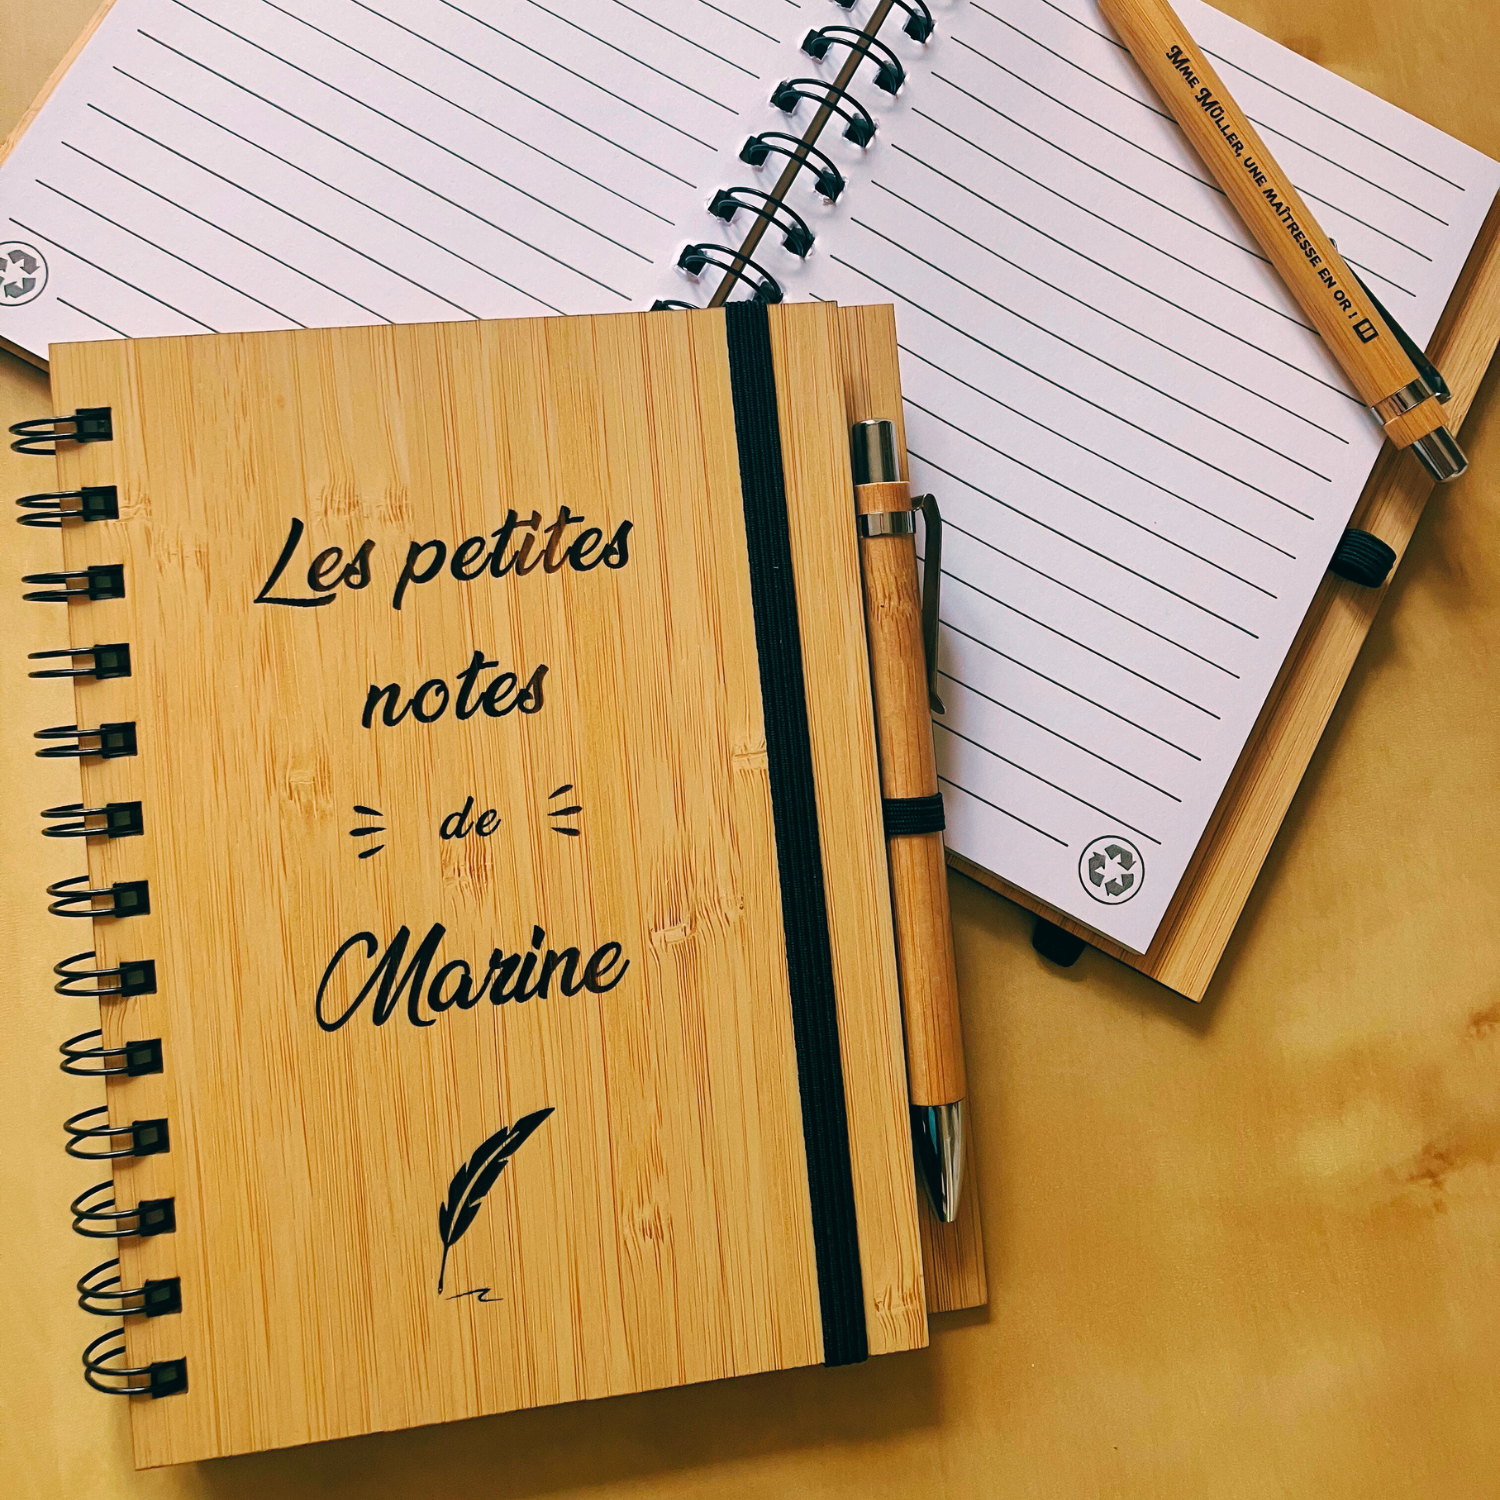 Les petites
notes
de
Marine
Mme Müller, une maîtresse en or !